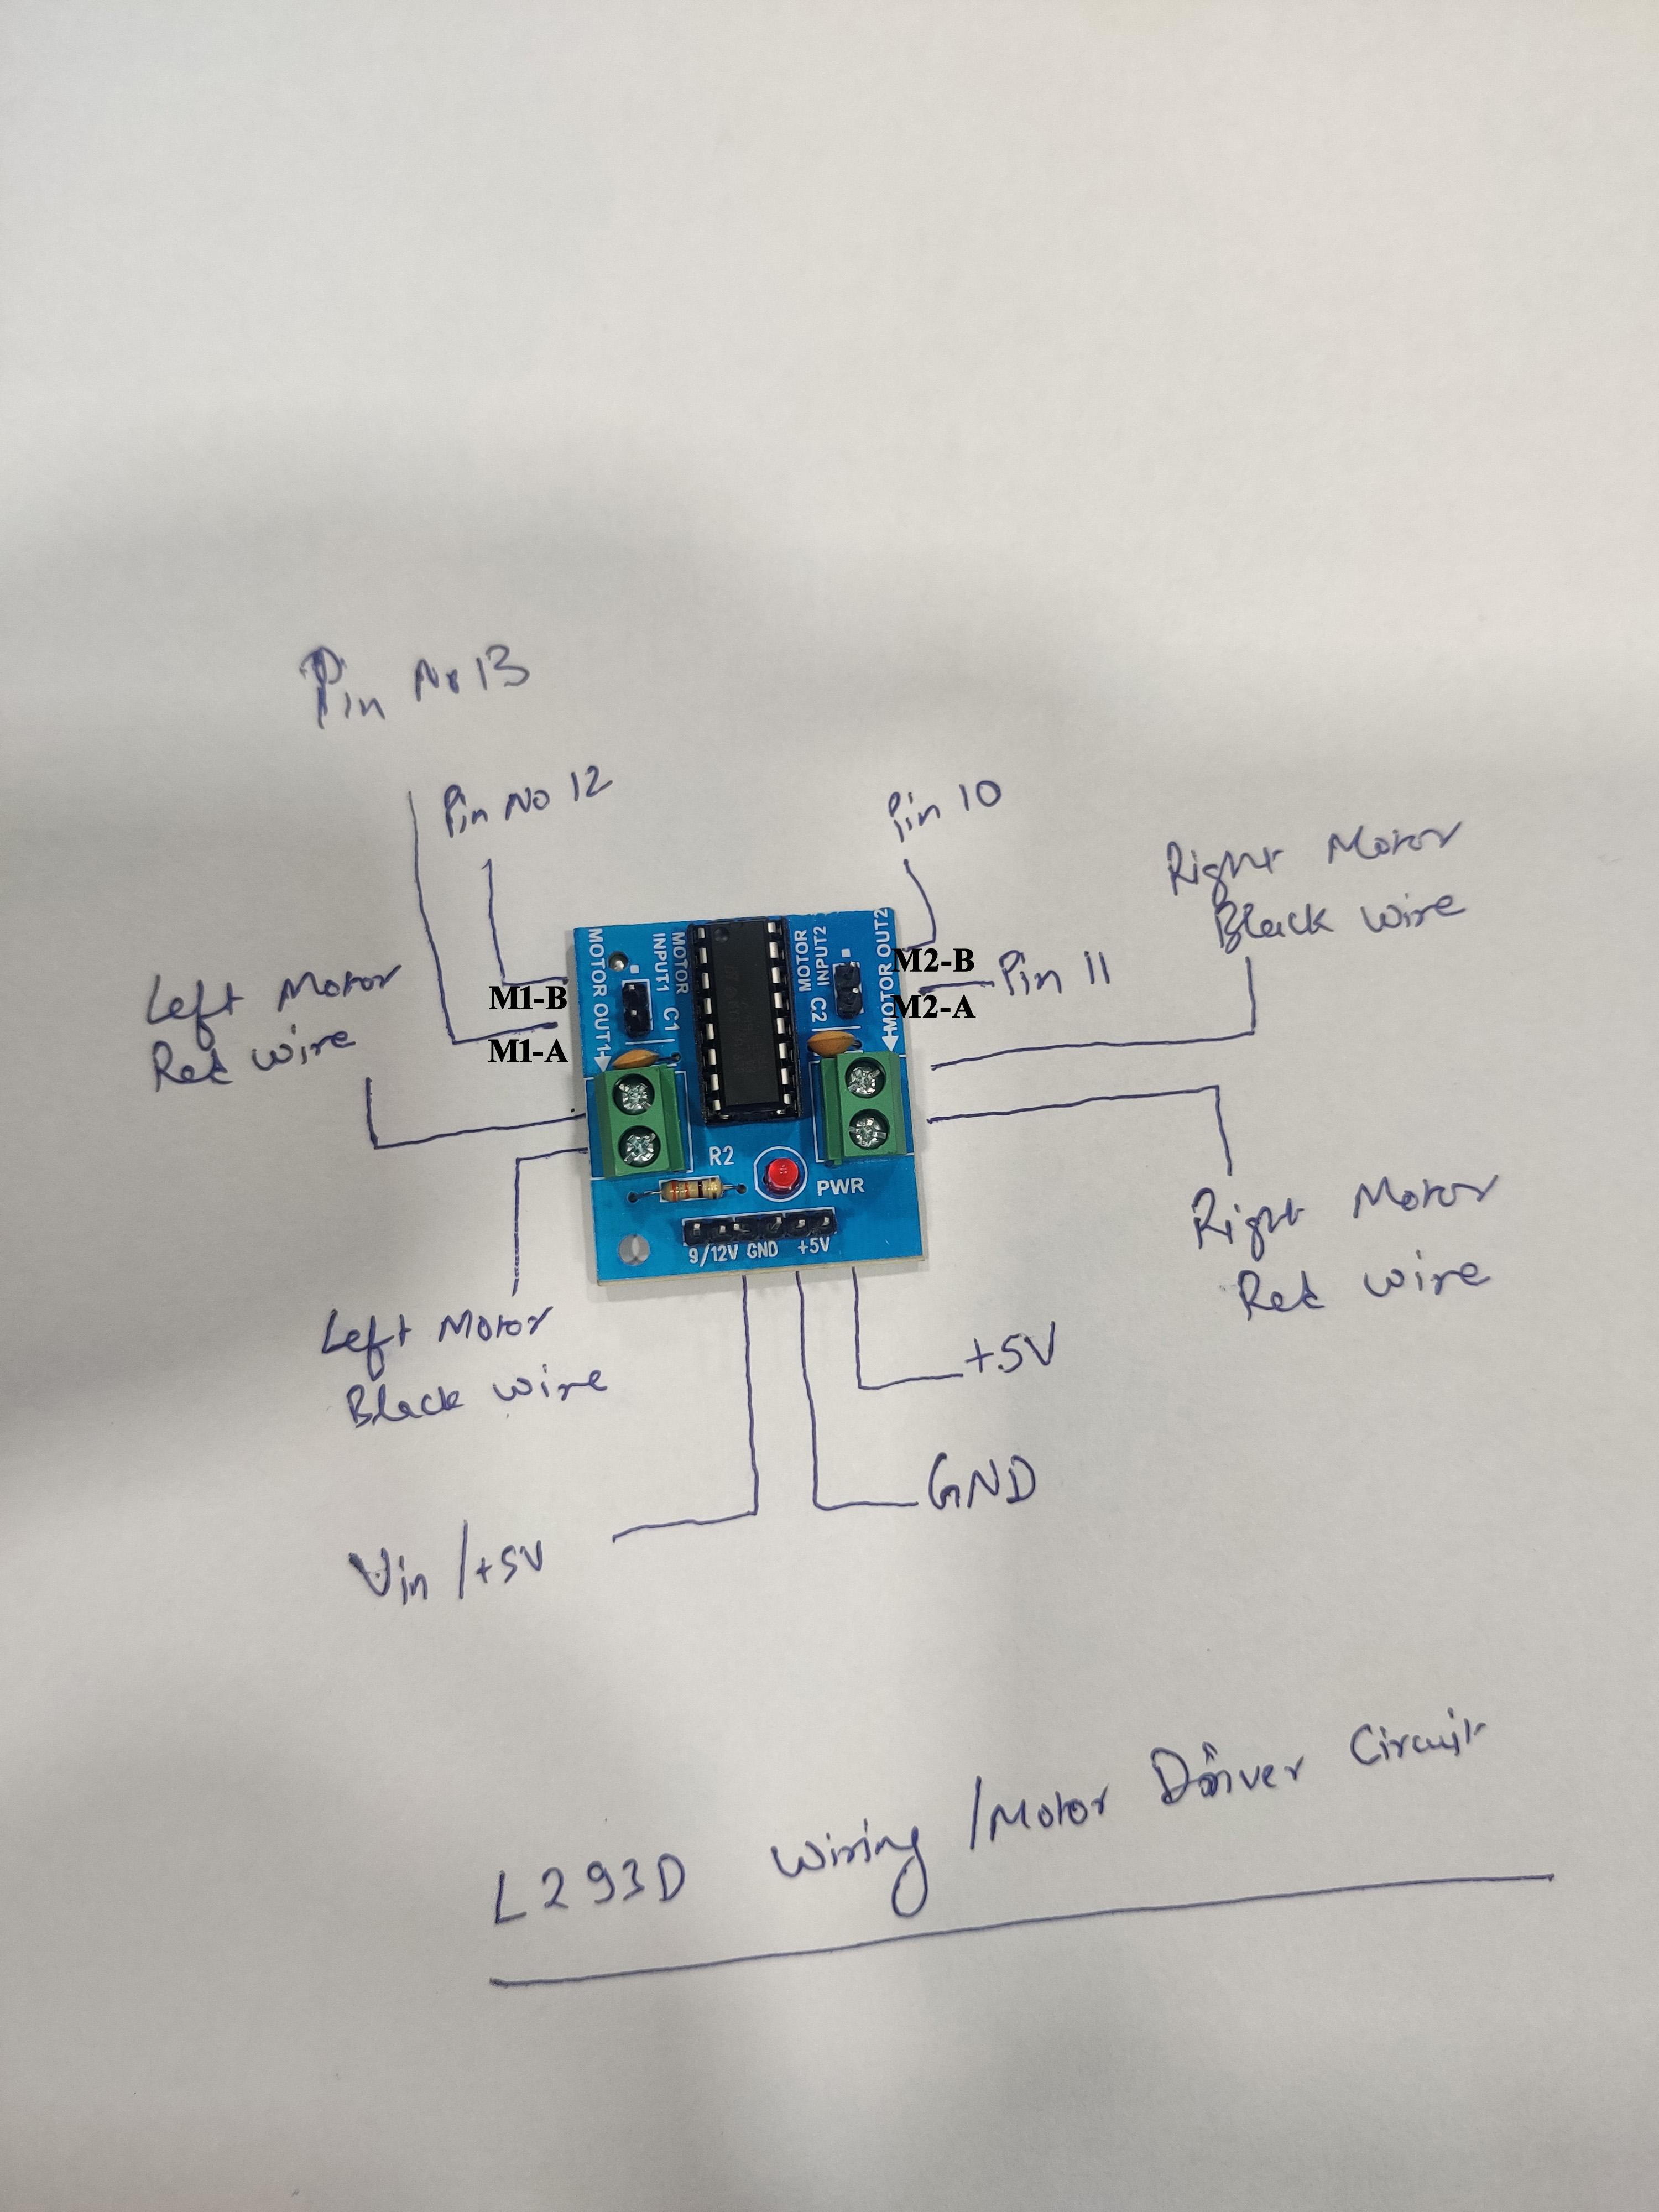 Pin No 13
Pin No 12
Pin 10
Right Motor
Black wire
Left Motor
Red wire
MOTOR OUT1
MOTOR
INPUT1
C1
MOTOR
INPUT2
C2
MOTOR OUT2
M1-B
M1-A
M2-B
M2-A
Pin 11
R2
PWR
9/12V GND +5V
Right Motor
Red wire
Left Motor
Black wire
+5V
GND
Vin /+5V
L293D Wiring /Motor Driver Circuit